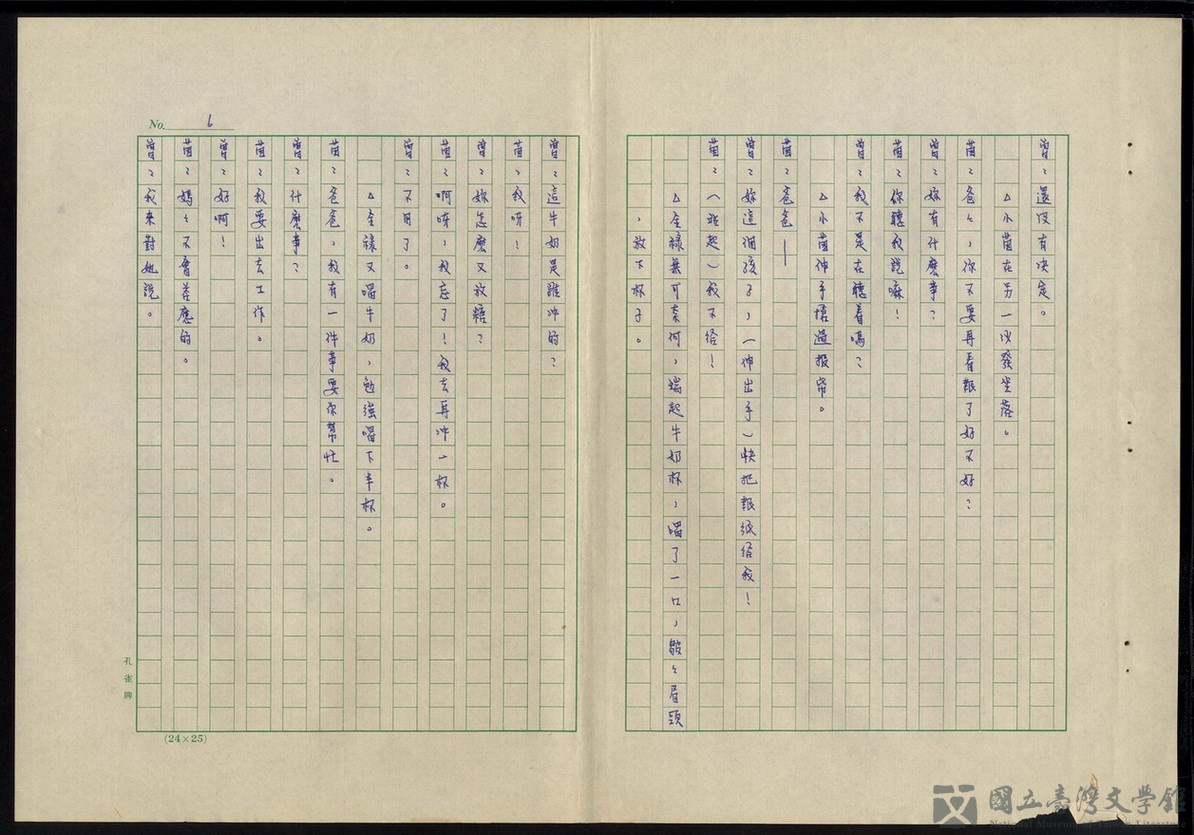 曾：還沒有决定。
△小茵在另一沙發坐落。
茵：爸々，你不要再看報了好不好？
曾：妳有什麽事？
茵：你聽我說嘛！
曾：我不是在聽着嗎？
△小茵伸手搶過報帋。
茵：爸爸—
曾：妳這個孩子，（伸出手）快把報紙给我！
茵：（站起）我不给！
△金祿無可奈何，端起牛奶杯，喝了一口，皺々眉頭
，放下杯子。
No. 6
曾：這牛奶是誰冲的？
茵：我呀！
曾：妳怎麽又放糖？
茵：啊呀，我忘了！我去再冲一杯。
曾：不用了。
△金祿又喝牛奶，勉強喝下半杯。
茵：爸爸，我有一件事要你幫忙。
曾：什麽事？
茵：我要出去工作。
曾：好啊！
茵：媽々不會荅應的。
曾：我來對她說。
孔雀牌
(24×25)
國立臺灣文學館
National Museum of Taiwan Literature